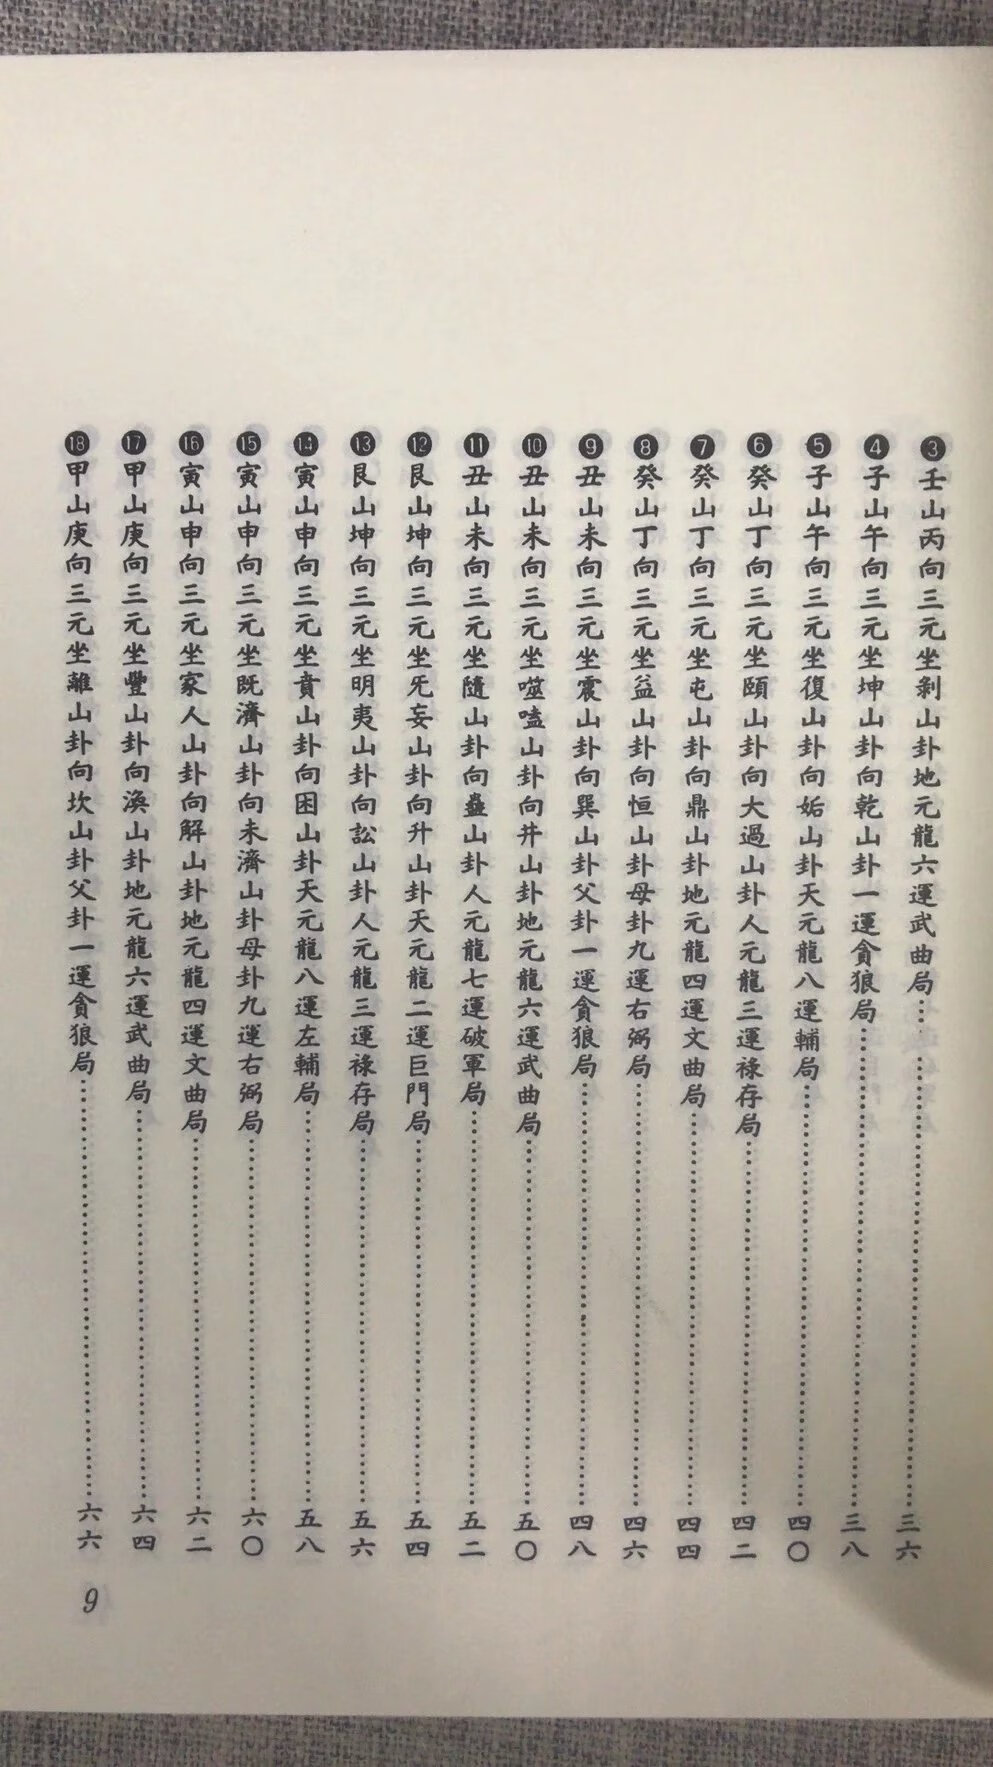 ❸壬山丙向三元坐剝山卦地元龍六運武曲局……三六
❹子山午向三元坐坤山卦向乾山卦一運貪狼局……三八
❺子山午向三元坐復山卦向姤山卦天元龍八運輔局……四〇
❻癸山丁向三元坐頤山卦向大過山卦人元龍三運祿存局……四二
❼癸山丁向三元坐屯山卦向鼎山卦地元龍四運文曲局……四四
❽癸山丁向三元坐益山卦向恒山卦母卦九運右弼局……四六
❾丑山未向三元坐震山卦向巽山卦父卦一運貪狼局……四八
❿丑山未向三元坐噬嗑山卦向井山卦地元龍六運武曲局……五〇
⓫丑山未向三元坐隨山卦向蠱山卦人元龍七運破軍局……五二
⓬艮山坤向三元坐旡妄山卦向升山卦天元龍二運巨門局……五四
⓭艮山坤向三元坐明夷山卦向訟山卦人元龍三運祿存局……五六
⓮寅山申向三元坐賁山卦向困山卦天元龍八運左輔局……五八
⓯寅山申向三元坐既濟山卦向未濟山卦母卦九運右弼局……六〇
⓰寅山申向三元坐家人山卦向解山卦地元龍四運文曲局……六二
⓱甲山庚向三元坐豐山卦向渙山卦地元龍六運武曲局……六四
⓲甲山庚向三元坐離山卦向坎山卦父卦一運貪狼局……六六
9